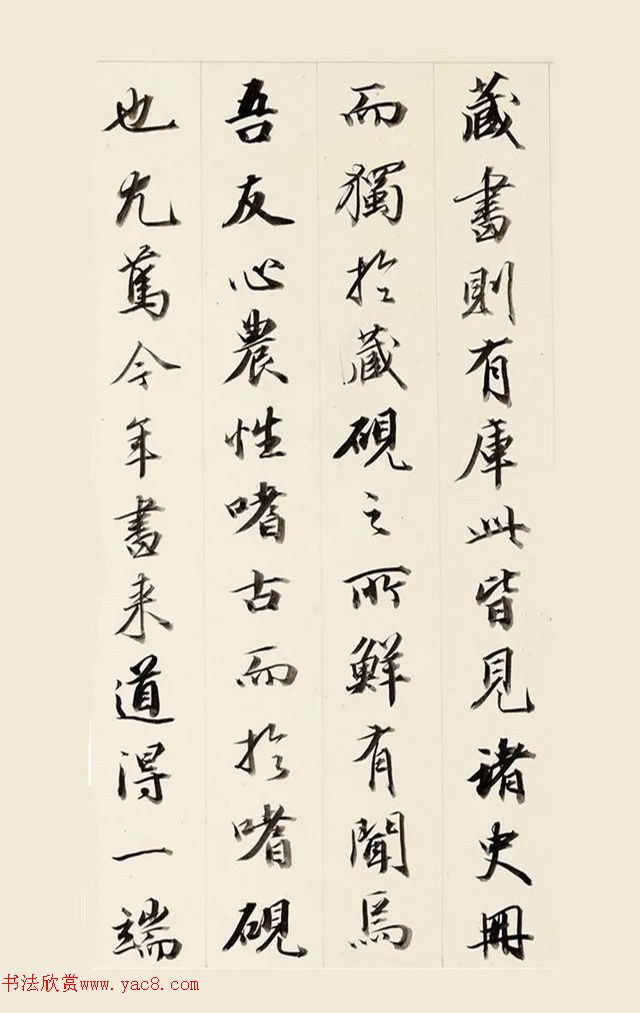 藏書則有庫此皆見諸史冊
而獨於藏硯之所鮮有聞焉
吾友心農性嗜古而於嗜硯
也尤篤今年書来道得一端
书法欣赏www.yac8.com